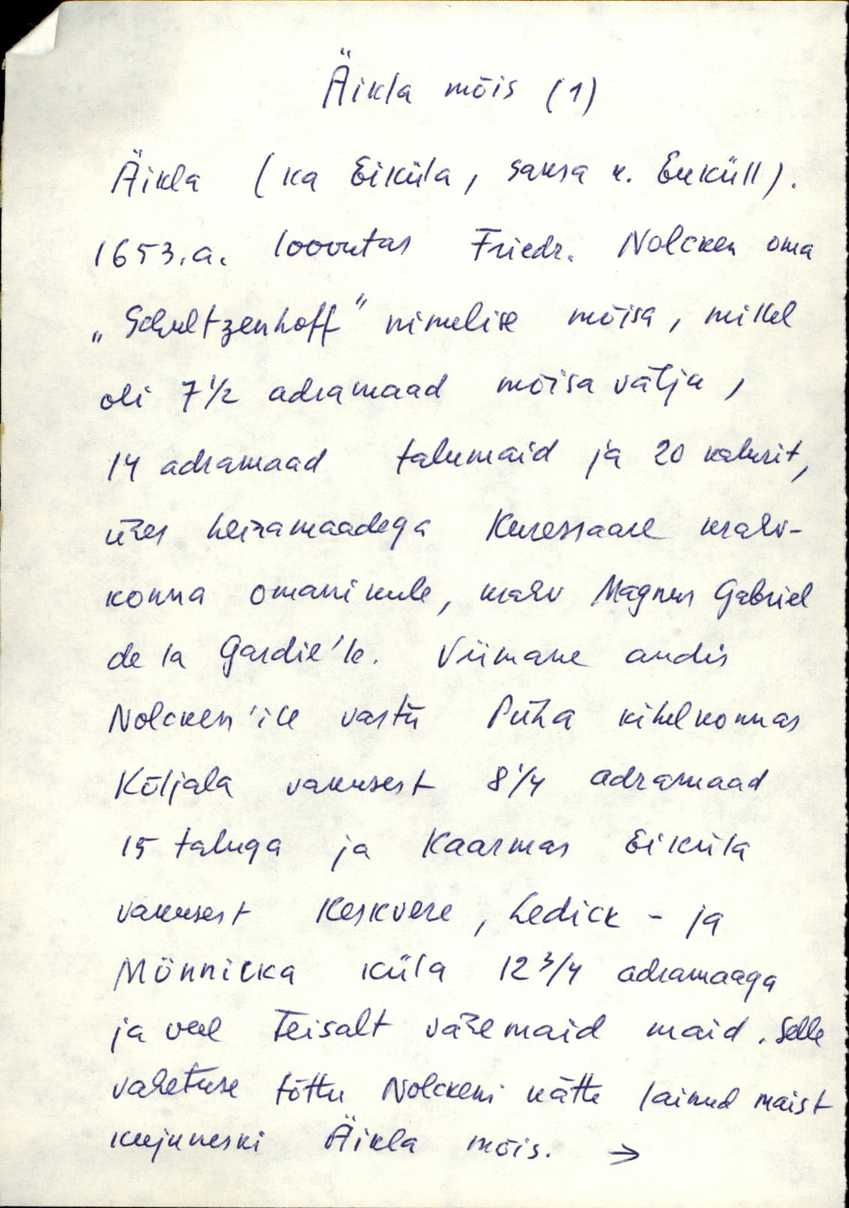 Äikla mõis (1)
Äikla (ka Eiküla, saksa k. Euküll).
1653.a. loovutas Friedr. Nolcken oma
„Schultzenhoff" nimelise mõisa, millel
oli 7 1/2 adramaad mõisa välja,
14 adramaad talumaid ja 20 kalurit,
ühes heinamaadega Kuressaare krahv-
konna omanikule, krahv Magnus Gabriel
de la Gardie'le. Viimane andis
Nolcken'ile vastu Püha kihelkonnas
Kõljala vakusest 8 1/4 adramaad
15 taluga ja Kaarmas Eiküla
vakusest Keskvere, Ledick- ja
Mönnicka küla 12 3/4 adramaaga
ja veel Teisalt vähemaid maid. Selle
vahetuse tõttu Nolckeni kätte läinud maist
kujuneski Äikla mõis. →